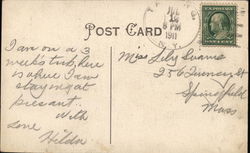 POST CARD
JUL
6 PM
1911
N.Y.
I am on a 3
week's trip here
is where I am
staying at
present.
With
love
Hilda
Miss Lily Evans
256
Springfield
Mass